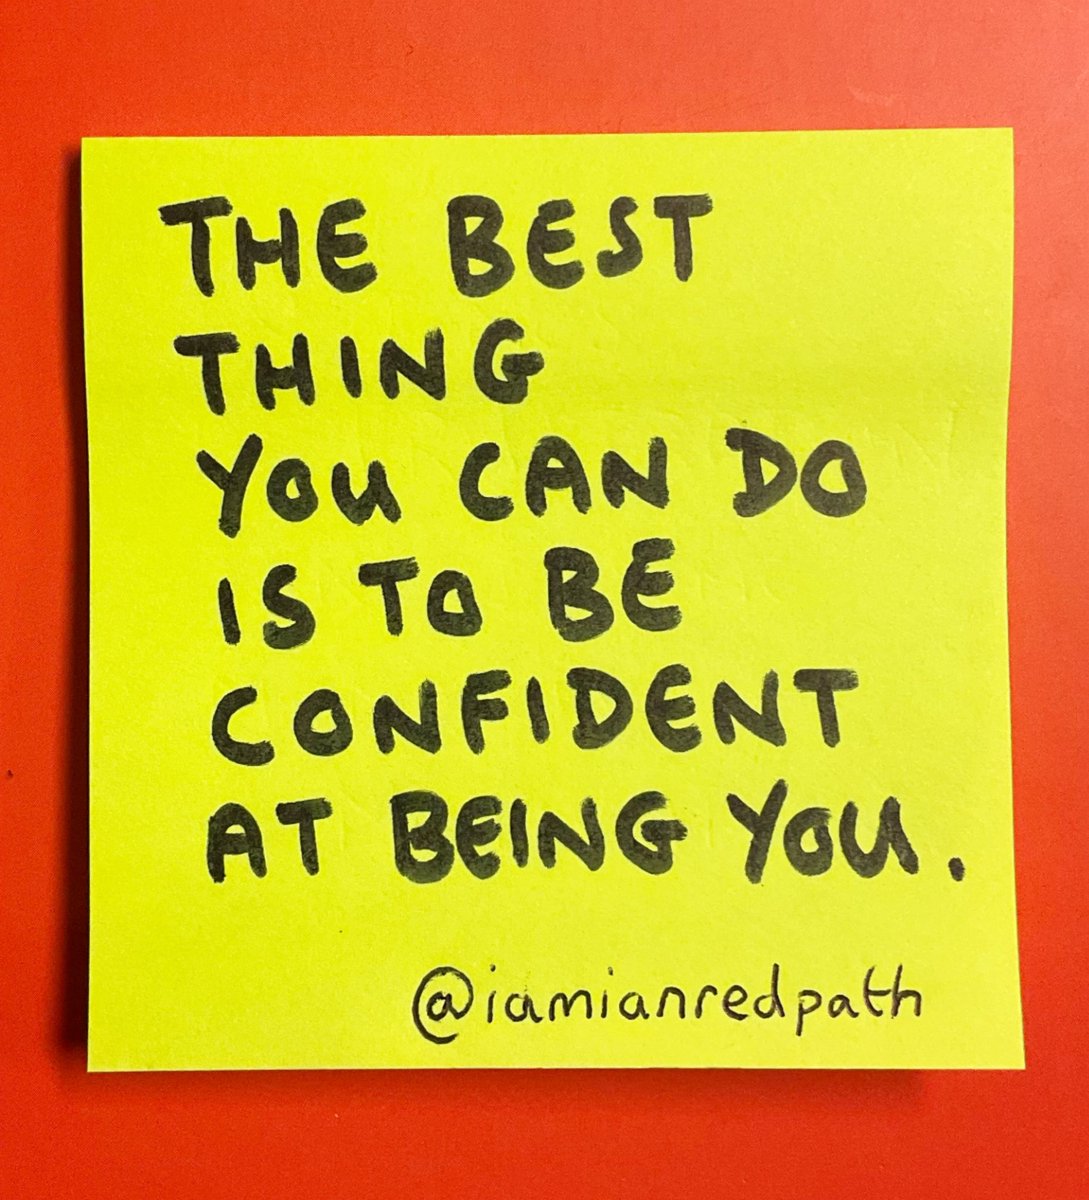 THE BEST
THING
YOU CAN DO
IS TO BE
CONFIDENT
AT BEING YOU.
@iamianredpath